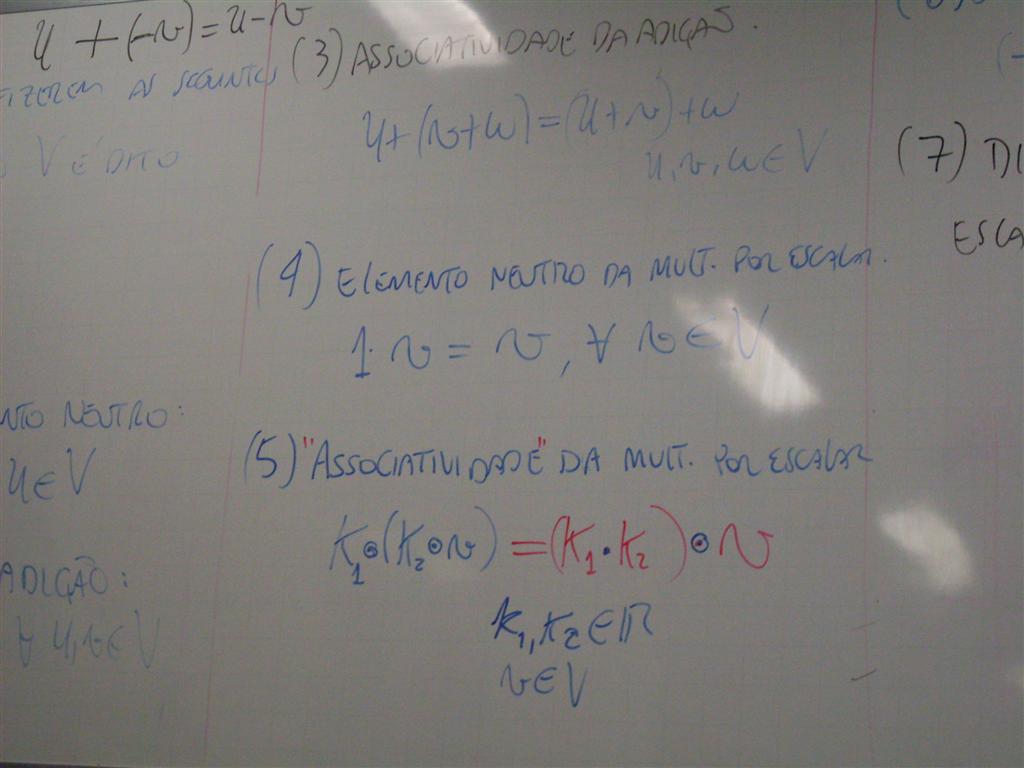 u + (-v) = u - v
FIZEREM AS SEGUINTES
V É DITO
NTO NEUTRO:
u ∈ V
ADIÇÃO:
∀ u, v ∈ V
(3) ASSOCIATIVIDADE DA ADIÇÃO.
u + (v + w) = (u + v) + w
u, v, w ∈ V
(4) ELEMENTO NEUTRO DA MULT. POR ESCALAR.
1 · v = v, ∀ v ∈ V
(5) "ASSOCIATIVIDADE" DA MULT. POR ESCALAR
K₁ ⊙ (K₂ ⊙ v) = (K₁ · K₂) ⊙ v
K₁, K₂ ∈ ℝ
v ∈ V
(7) DI
ESCA